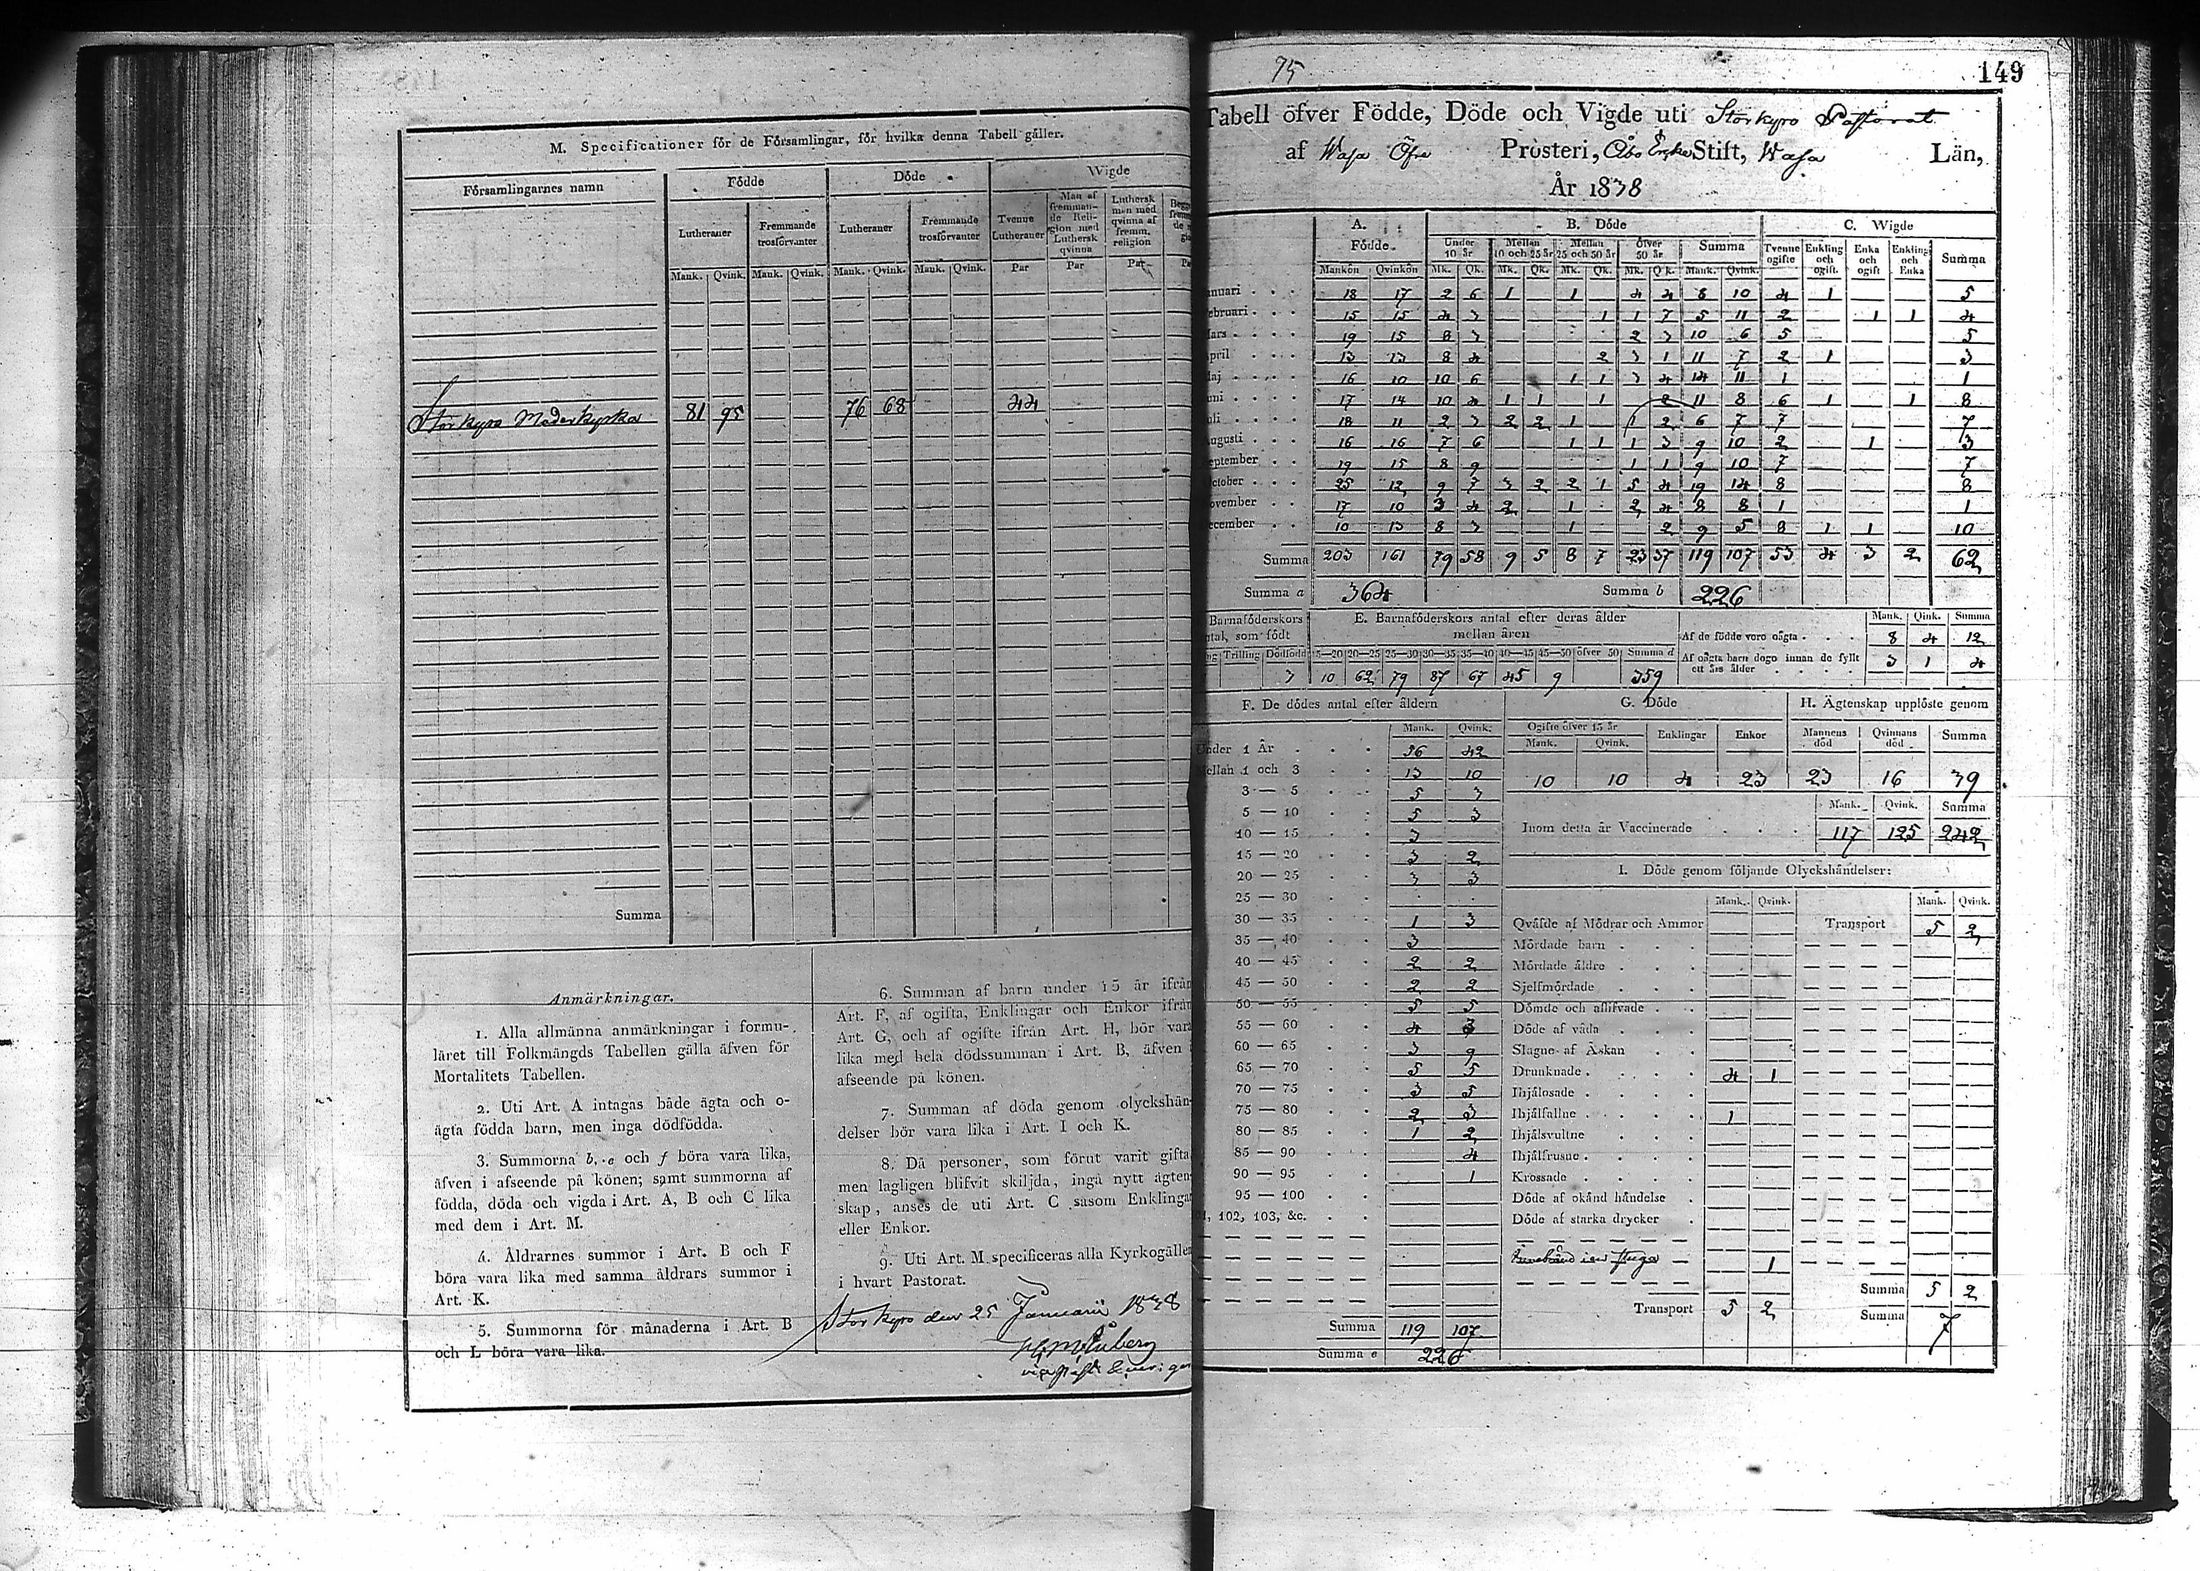 M. Specificationer för de Församlingar, för hvilka denna Tabell gäller.
Församlingarnes namn | Födde | Döde | Wigde
Lutheraner | Fremmande trosförvanter | Lutheraner | Fremmande trosförvanter | Tvenne Lutheraner | Man af fremmande Religion med Luthersk qvinna | Luthersk man med qvinna af fremm. religion
Mank. | Qvink. | Mank. | Qvink. | Mank. | Qvink. | Mank. | Qvink. | Par | Par | Par
Storkyro Moderkyrka 81 95 76 68 44
Summa
Anmärkningar.
1. Alla allmänna anmärkningar i formu-
läret till Folkmängds Tabellen gälla äfven för
Mortalitets Tabellen.
2. Uti Art. A intagas både ägta och o-
ägta födda barn, men inga dödfödda.
3. Summorna b, e och f böra vara lika,
äfven i afseende på könen; samt summorna af
födda, döda och vigda i Art. A, B och C lika
med dem i Art. M.
4. Åldrarnes summor i Art. B och F
böra vara lika med samma åldrars summor i
Art. K.
5. Summorna för månaderna i Art. B
och L böra vara lika.
6. Summan af barn under 15 år ifrån
Art. F, af ogifta, Enklingar och Enkor ifrån
Art. G, och af ogifte ifrån Art. H, bör vara
lika med hela dödssumman i Art. B, äfven i
afseende på könen.
7. Summan af döda genom olyckshän-
delser bör vara lika i Art. I och K.
8. Då personer, som förut varit gifta
men lagligen blifvit skiljda, ingå nytt ägten-
skap, anses de uti Art. C såsom Enklingar
eller Enkor.
9. Uti Art. M specificeras alla Kyrkogäller
i hvart Pastorat.
Storkyro den 25 Januarii 1838
75
149
Tabell öfver Födde, Döde och Vigde uti Storkyro Pastorat
af Wasa Öfre Prosteri, Åbo Erke Stift, Wasa Län,
År 1838
A. Födde. | B. Döde | C. Wigde
Under 10 år | Mellan 10 och 25 år | Mellan 25 och 50 år | öfver 50 år | Summa | Tvenne ogifte | Enkling och ogift. | Enka och ogift | Enkling och Enka | Summa
Mankön | Qvinkön | Mk. | Qk. | Mk. | Qk. | Mk. | Qk. | Mk. | Qk. | Mank. | Qvink.
anuari 18 17 2 6 1 1 4 4 8 10 4 1 5
ebruari 15 15 4 3 1 1 7 5 11 2 1 1 4
ars 19 15 8 3 2 3 10 6 5 5
april 13 13 8 4 2 3 1 11 7 2 1 3
aj 16 10 10 6 1 1 3 4 14 11 1 1
uni 17 14 10 4 1 1 1 2 11 8 6 1 1 8
uli 18 11 2 3 2 2 1 1 2 6 7 7 7
ugusti 16 16 7 6 1 1 1 3 9 10 2 1 3
eptember 19 15 8 9 1 1 9 10 7 7
ctober 25 12 9 7 3 2 2 1 5 4 19 14 8 8
ovember 17 10 3 4 2 1 2 4 8 8 1 1
ecember 10 13 8 3 1 2 9 5 8 1 1 10
Summa 203 161 79 58 9 5 8 7 23 37 119 107 53 4 3 2 62
Summa a 364 Summa b 226
Barnaföderskors
antal, som födt
Trilling | Dödfödd
3
E. Barnaföderskors antal efter deras ålder
mellan åren
15—20 | 20—25 | 25—30 | 30—35 | 35—40 | 40—45 | 45—50 | öfver 50 | Summa d
10 62 79 87 67 45 9 359
Mank. | Qink. | Summa
Af de födde voro oägta 8 4 12
Af oägta barn dogo innan de fyllt
ett års ålder 3 1 4
F. De dödes antal efter åldern
Mank. | Qvink.
Under 1 År 36 42
Mellan 1 och 3 13 10
3 — 5 5 3
5 — 10 5 3
10 — 15 3
15 — 20 3 2
20 — 25 3 3
25 — 30
30 — 35 1 3
35 — 40 3
40 — 45 2 2
45 — 50 2 2
50 — 55 5 5
55 — 60 4
60 — 65 3 9
65 — 70 5 5
70 — 75 3 5
75 — 80 2 3
80 — 85 1 2
85 — 90 4
90 — 95 1
95 — 100
102, 103, &c.
Summa 119 107
Summa e 226
G. Döde
Ogifte öfver 15 år | Enklingar | Enkor
Mank. | Qvink.
10 10 4 23
H. Ägtenskap upplöste genom
Mannens död | Qvinnans död | Summa
23 16 39
Mank. | Qvink. | Summa
Inom detta år Vaccinerade 117 125 242
I. Döde genom följande Olyckshändelser:
Mank. | Qvink. | Mank. | Qvink.
Qväfde af Mödrar och Ammor
Transport 5 2
Mördade barn
Mördade äldre
Sjelfmördade
Dömde och aflifvade
Döde af våda
Slagne af Åskan
Drunknade 4 1
Ihjälosade
Ihjälfallne 1
Ihjälsvultne
Ihjälfrusne
Krossade
Döde af okänd händelse
Döde af starka drycker
1
Summa 5 2
Transport 5 2
Summa 7